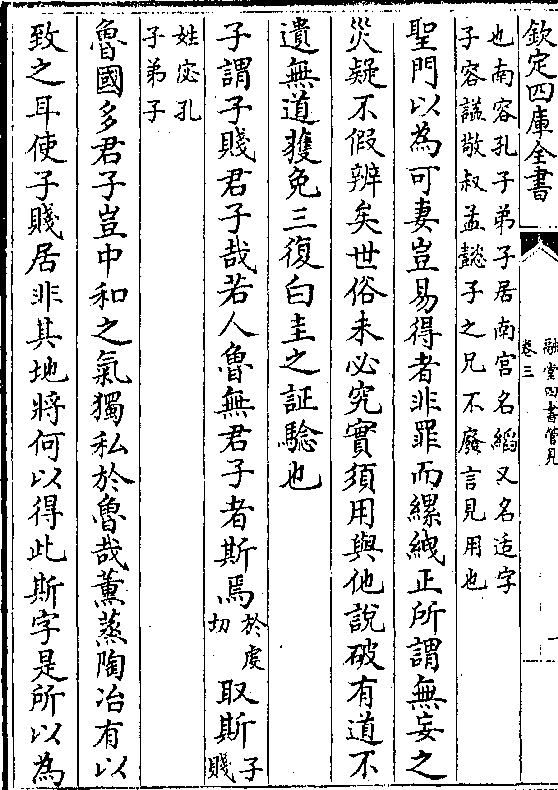 欽定四庫全書
融堂四書管見
卷三
也南容孔子弟子居南宫名縚又名适字
子容諡敬叔孟懿子之兄不廢言見用也
聖門以為可妻豈易得者非罪而縲絏正所謂無妄之
災疑不假辨矣世俗未必究實須用與他說破有道不
遺無道獲免三復白圭之証驗也
子謂子賤君子哉若人魯無君子者斯焉於虔切取斯子賤
姓宓孔
子弟子
魯國多君子豈中和之氣獨私於魯哉薫蒸陶冶有以
致之耳使子賤居非其地將何以得此斯字是所以為